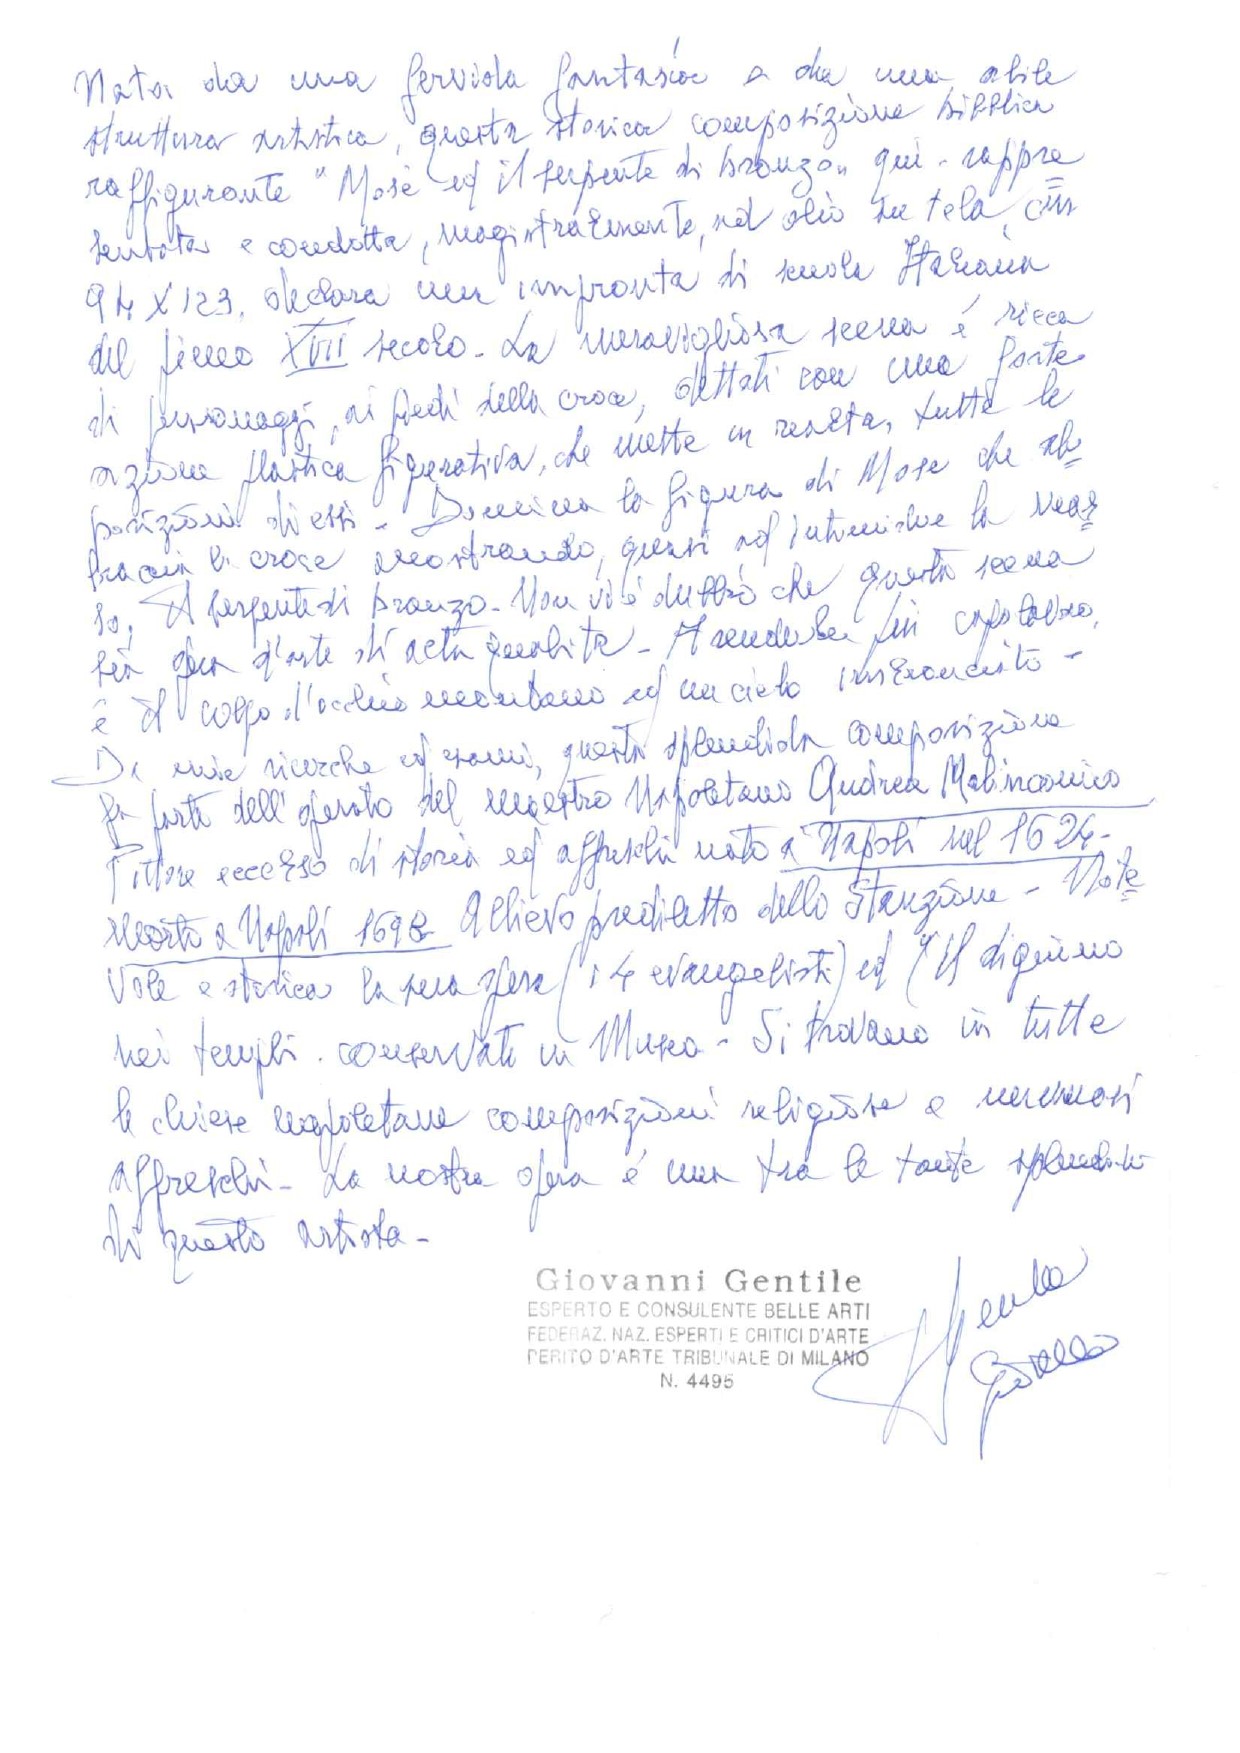 Nata da una fervida fantasia e da una abile
struttura artistica, questa storica composizione biblica
raffigurante "Mosè ed il serpente di bronzo" qui - rappre
sentata e condotta, magistralmente, ad olio su tela, cm
94 X 123, declara una impronta di scuola Italiana
del pieno XVII secolo - La meravigliosa scena é ricca
di personaggi, ai piedi della croce, dettati con una forte
azione plastica figurativa, che mette in risalto, tutte le
posizioni di essi - Domina la figura di Mose che ab
braccia la croce mostrando, quasi ad intimidire la
Il serpente di bronzo - Non vi é dubbio che questa scena
sia opera d'arte di alta qualità - A renderla più capolavoro,
é il colpo d'occhio montano ed un cielo
Da mie ricerche ed esami, questa splendida composizione
fa parte dell'operato del maestro Napoletano Andrea Malinconico
Pittore eccelso di storia ed affreschi nato a Napoli nel 1624 -
morto a Napoli 1698 Allievo prediletto dello Stanzione - Note
vole e storica la sua opera (i 4 evangelisti) ed "Il digiuno
nei templi - conservati in Museo - Si trovano in tutte
le chiese napoletane composizioni religiose e numerosi
affreschi - La nostra opera é una tra le tante splendide
di questo artista -
Giovanni Gentile
ESPERTO E CONSULENTE BELLE ARTI
FEDERAZ. NAZ. ESPERTI E CRITICI D'ARTE
PERITO D'ARTE TRIBUNALE DI MILANO
N. 4495